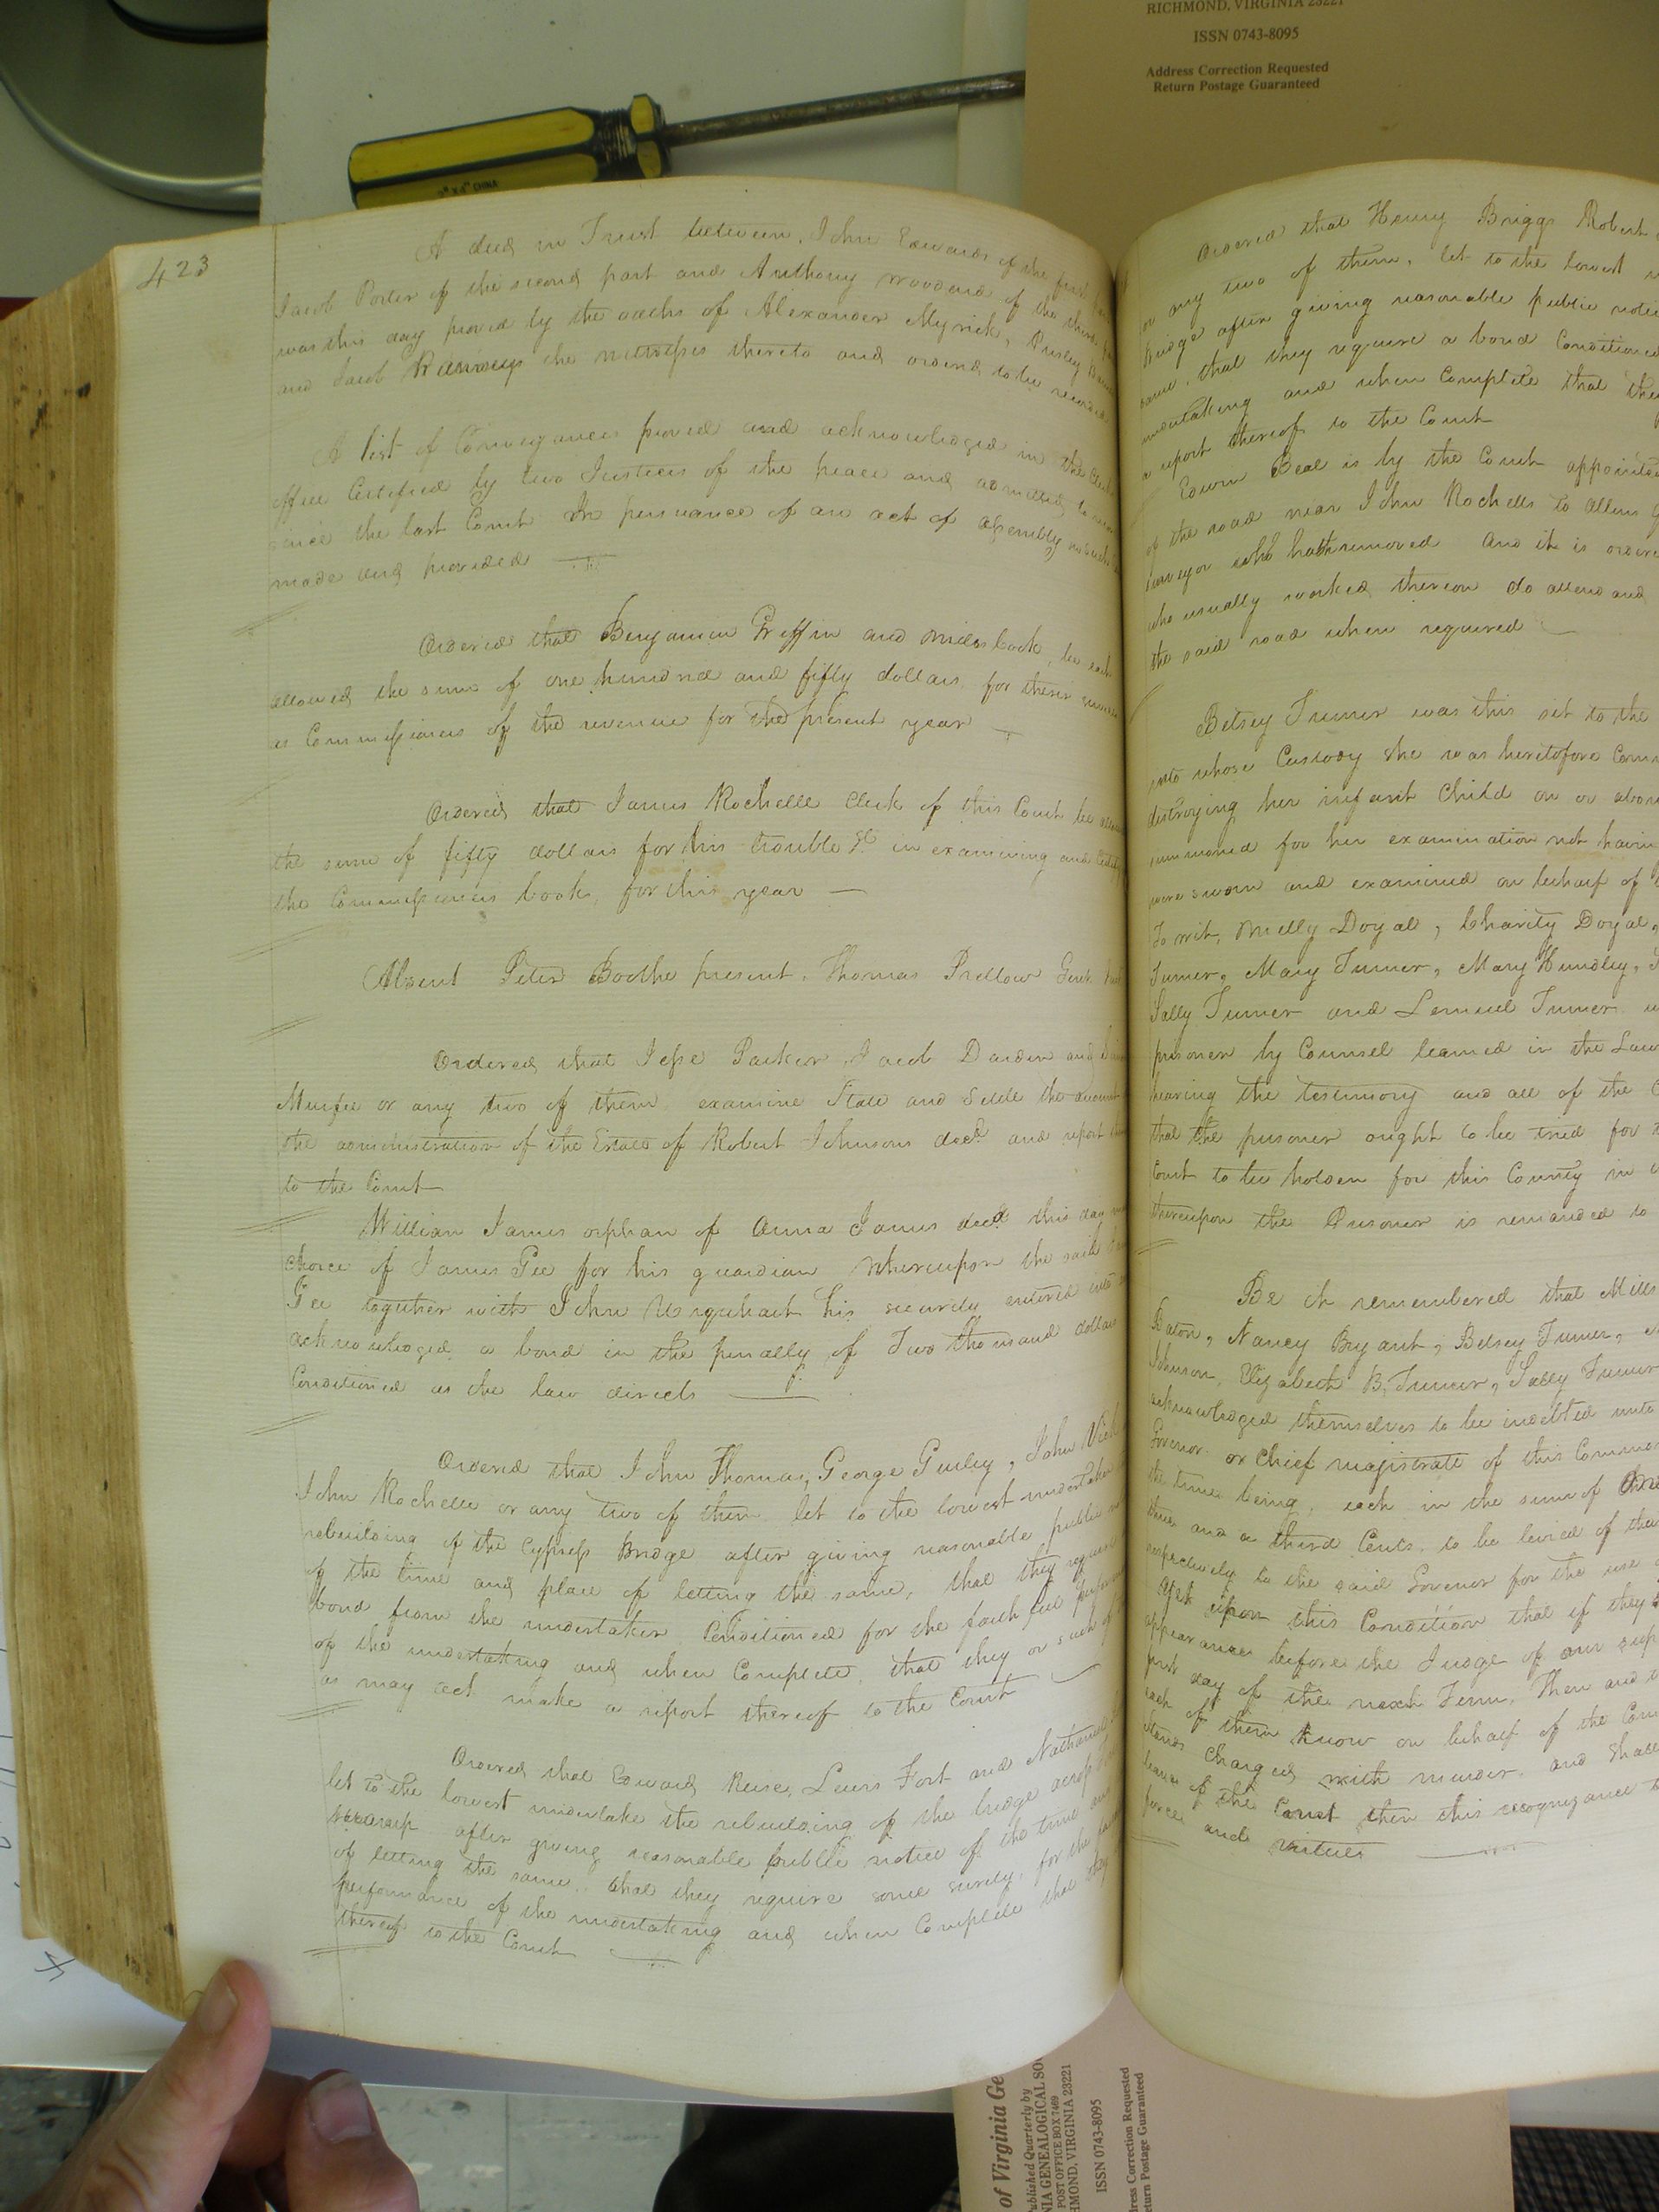 RICHMOND, VIRGINIA 23221
ISSN 0743-8095
Address Correction Requested
Return Postage Guaranteed
CHINA
423
A deed in Trust between, John Edwards of the first
Jacob Porter of the second part and Anthony Woodard of the third
was this day proved by the oaths of Alexander Myrick,
and Jacob the witnesses thereto and ordered to be recorded
A list of Conveyances proved and acknowledged in the
office Certified by two Justices of the peace and admitted to
since the last Court In persuance of an act of assembly
made and provided
Ordered that Benjamin Griffin and be each
allowed the sum of one hundred and fifty dollars for their
as Commissioners of the revenue for the present year
Ordered that James Rochelle Clerk of this Court be
the sum of fifty dollars for his trouble &c in examining and
the Commissioners books, for this year
Absent Peter Boothe present, Thomas Pretlow Gent.
Ordered that Jesse Parker, Jacob Darden and
Murfee or any two of them examine State and Settle the account
the administration of the Estate of Robert Johnsons decd and report
to the Court
William James orphan of Anna James decd this day
choice of James Gee for his guardian Whereupon the said
Gee together with John Urquhart his security entered into
acknowledged a bond in the penalty of Two thousand dollars
Conditioned as the law directs
Ordered that John Thomas, George Gurley, John
John Rochelle or any two of them let to the lowest undertaker
rebuilding of the Cypress Bridge after giving reasonable public
of the time and place of letting the same, that they require
bond from the undertaker Conditioned for the faithful
of the undertaking and when Complete, that they or such of
as may act make a report thereof to the Court
Ordered that Edward Reise, Lewis Fort and
let to the lowest undertake the rebuilding of the bridge across
after giving reasonable public notice of the time
of letting the same, that they require some surety, for the
performance of the undertaking and when Complete that they
thereof to the Court
Ordered that Henry Briggs Robert
or any two of them, let to the lowest
bridge after giving reasonable public
same, that they require a bond Conditioned
undertaking and when Complete that
a report thereof to the Court
Edwin Beal is by the Court appointed
of the road near John Rochells to Allens
surveyor who hath removed And it is
who usually worked thereon do attend and
the said road when required
Betsey Turner was this set to the
into whose Custody she was heretofore
destroying her infant Child on or
summoned for her examination not
were sworn and examined on behalf of
To wit, Milly Doyal, Charity Doyal,
Turner, Mary Turner, Mary Hundley,
Sally Turner and Lemuel Turner
prisoner by Counsel learned in the Law
hearing the testimony and all of the
that the prisoner ought to be tried for
Court to be holden for this County in
thereupon the Prisoner is remanded to
Be it remembered that Mills
Eaton, Nancy Bryant, Betsey Turner,
Johnson, Elizabeth B. Turner, Sally Turner
acknowledged themselves to be indebted unto
Govenor or Chief magistrate of this
the time being, each in the sum of
three and a third Cents, to be levied of
respectively to the said Govenor for the use
Yet upon this Condition that if they
appearance before the Judge of our
first day of the next Term, Then and
each of them know on behalf of the
stands Charged with murder and shall
leave of the Court then this recognizance
force and virtue
of Virginia Ge
Published Quarterly by
NIA GENEALOGICAL SO
POST OFFICE BOX 7469
HMOND, VIRGINIA 23221
ISSN 0743-8095
dress Correction Requested
eturn Postage Guaranteed